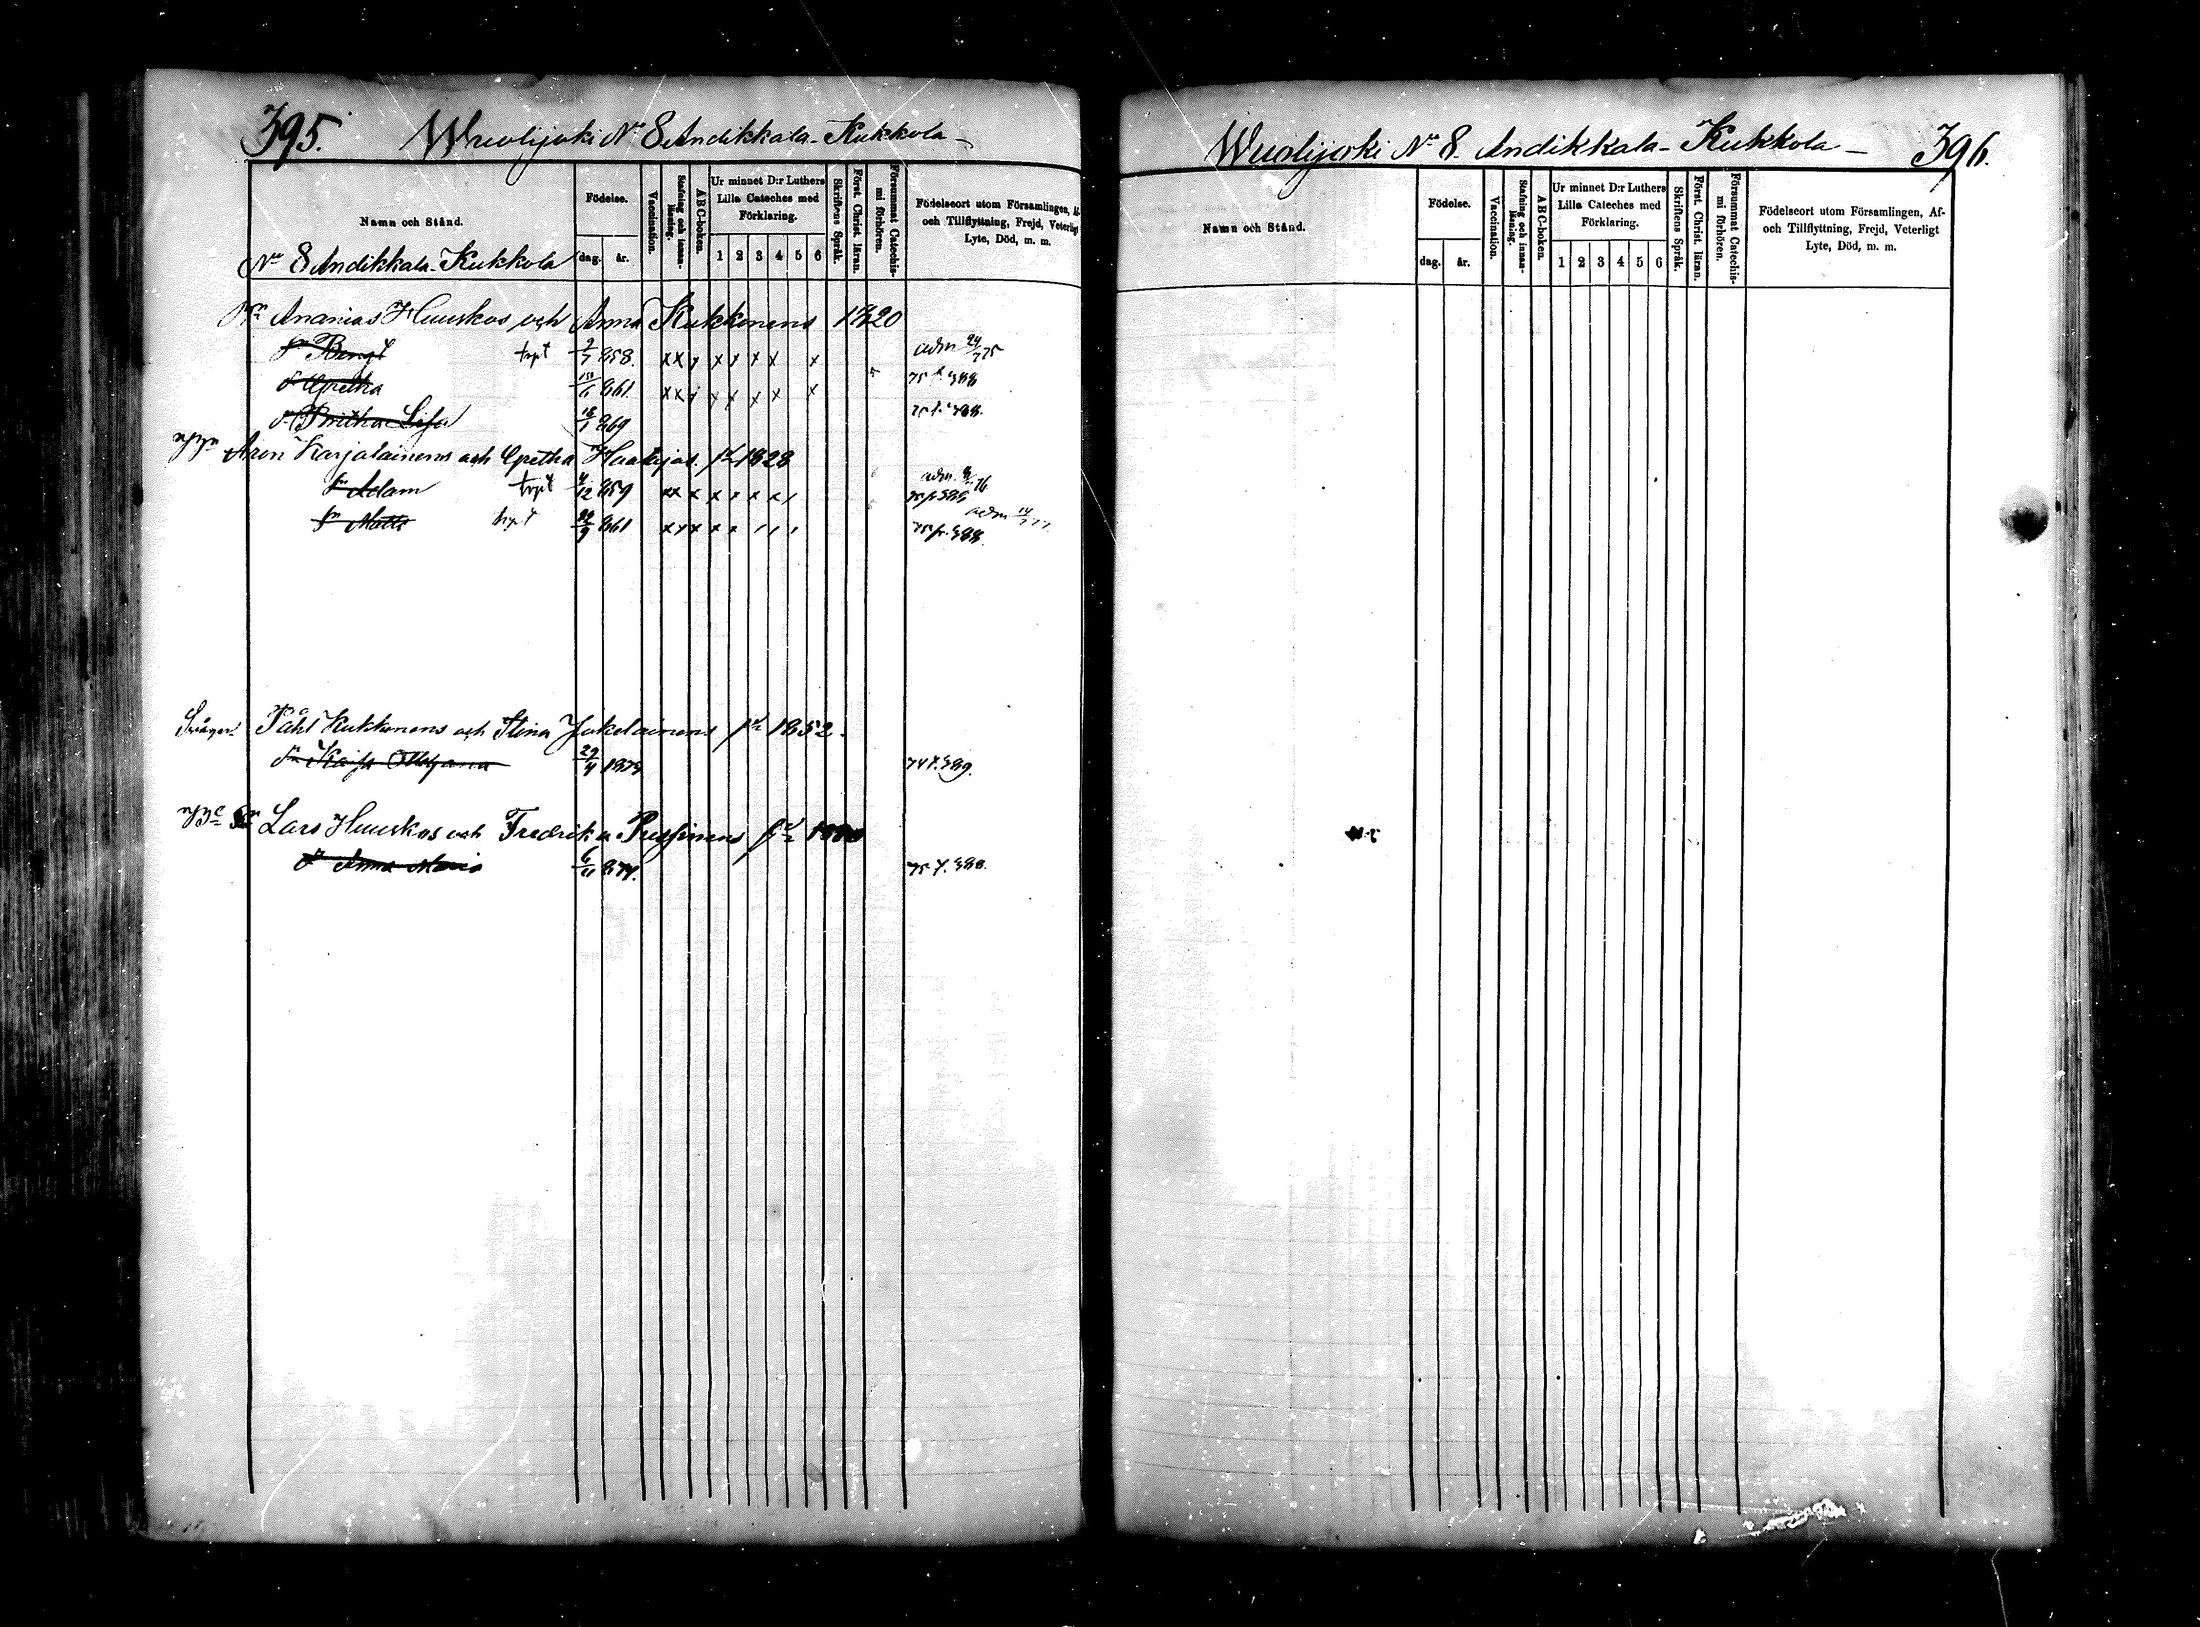 395.
Wuolijoki No 8 Andikkala-Kukkola
Namn och Stånd.
Födelse.
dag.
år.
Vaccination.
Stafning och innan-läsning.
ABC-boken.
Ur minnet D:r Luthers
Lilla Cateches med
Förklaring.
1 2 3 4 5 6
Skriftens Språk.
Först. Christ. läran.
Försummat Catechis-
mi förhören.
Födelseort utom Församlingen, Af-
och Tillflyttning, Frejd, Veterligt
Lyte, Död, m. m.
No 8 Andikkala-Kukkola
Ananias Huuskos och Anna Kukkonens
Bengt 858. adm 24/7 75
Gretha 861
Britha Lisa 869
Aron Karjalainens och Gretha Haatajas 1828
Adam 4/12 859 adm.
Matts 861 adm
Påhl Kukkonens och Stina Jokelainens 1852.
Kaisa 29/4 1873
Lars Huuskos och Fredrika
Anna Maria 6/11 874.
Wuolijoki No 8. Andikkala-Kukkola 396.
Namn och Stånd.
Födelse.
dag.
år.
Vaccination.
Stafning och innan-läsning.
ABC-boken.
Ur minnet D:r Luthers
Lilla Cateches med
Förklaring.
1 2 3 4 5 6
Skriftens Språk.
Först. Christ. läran.
Försummat Catechis-
mi förhören.
Födelseort utom Församlingen, Af-
och Tillflyttning, Frejd, Veterligt
Lyte, Död, m. m.